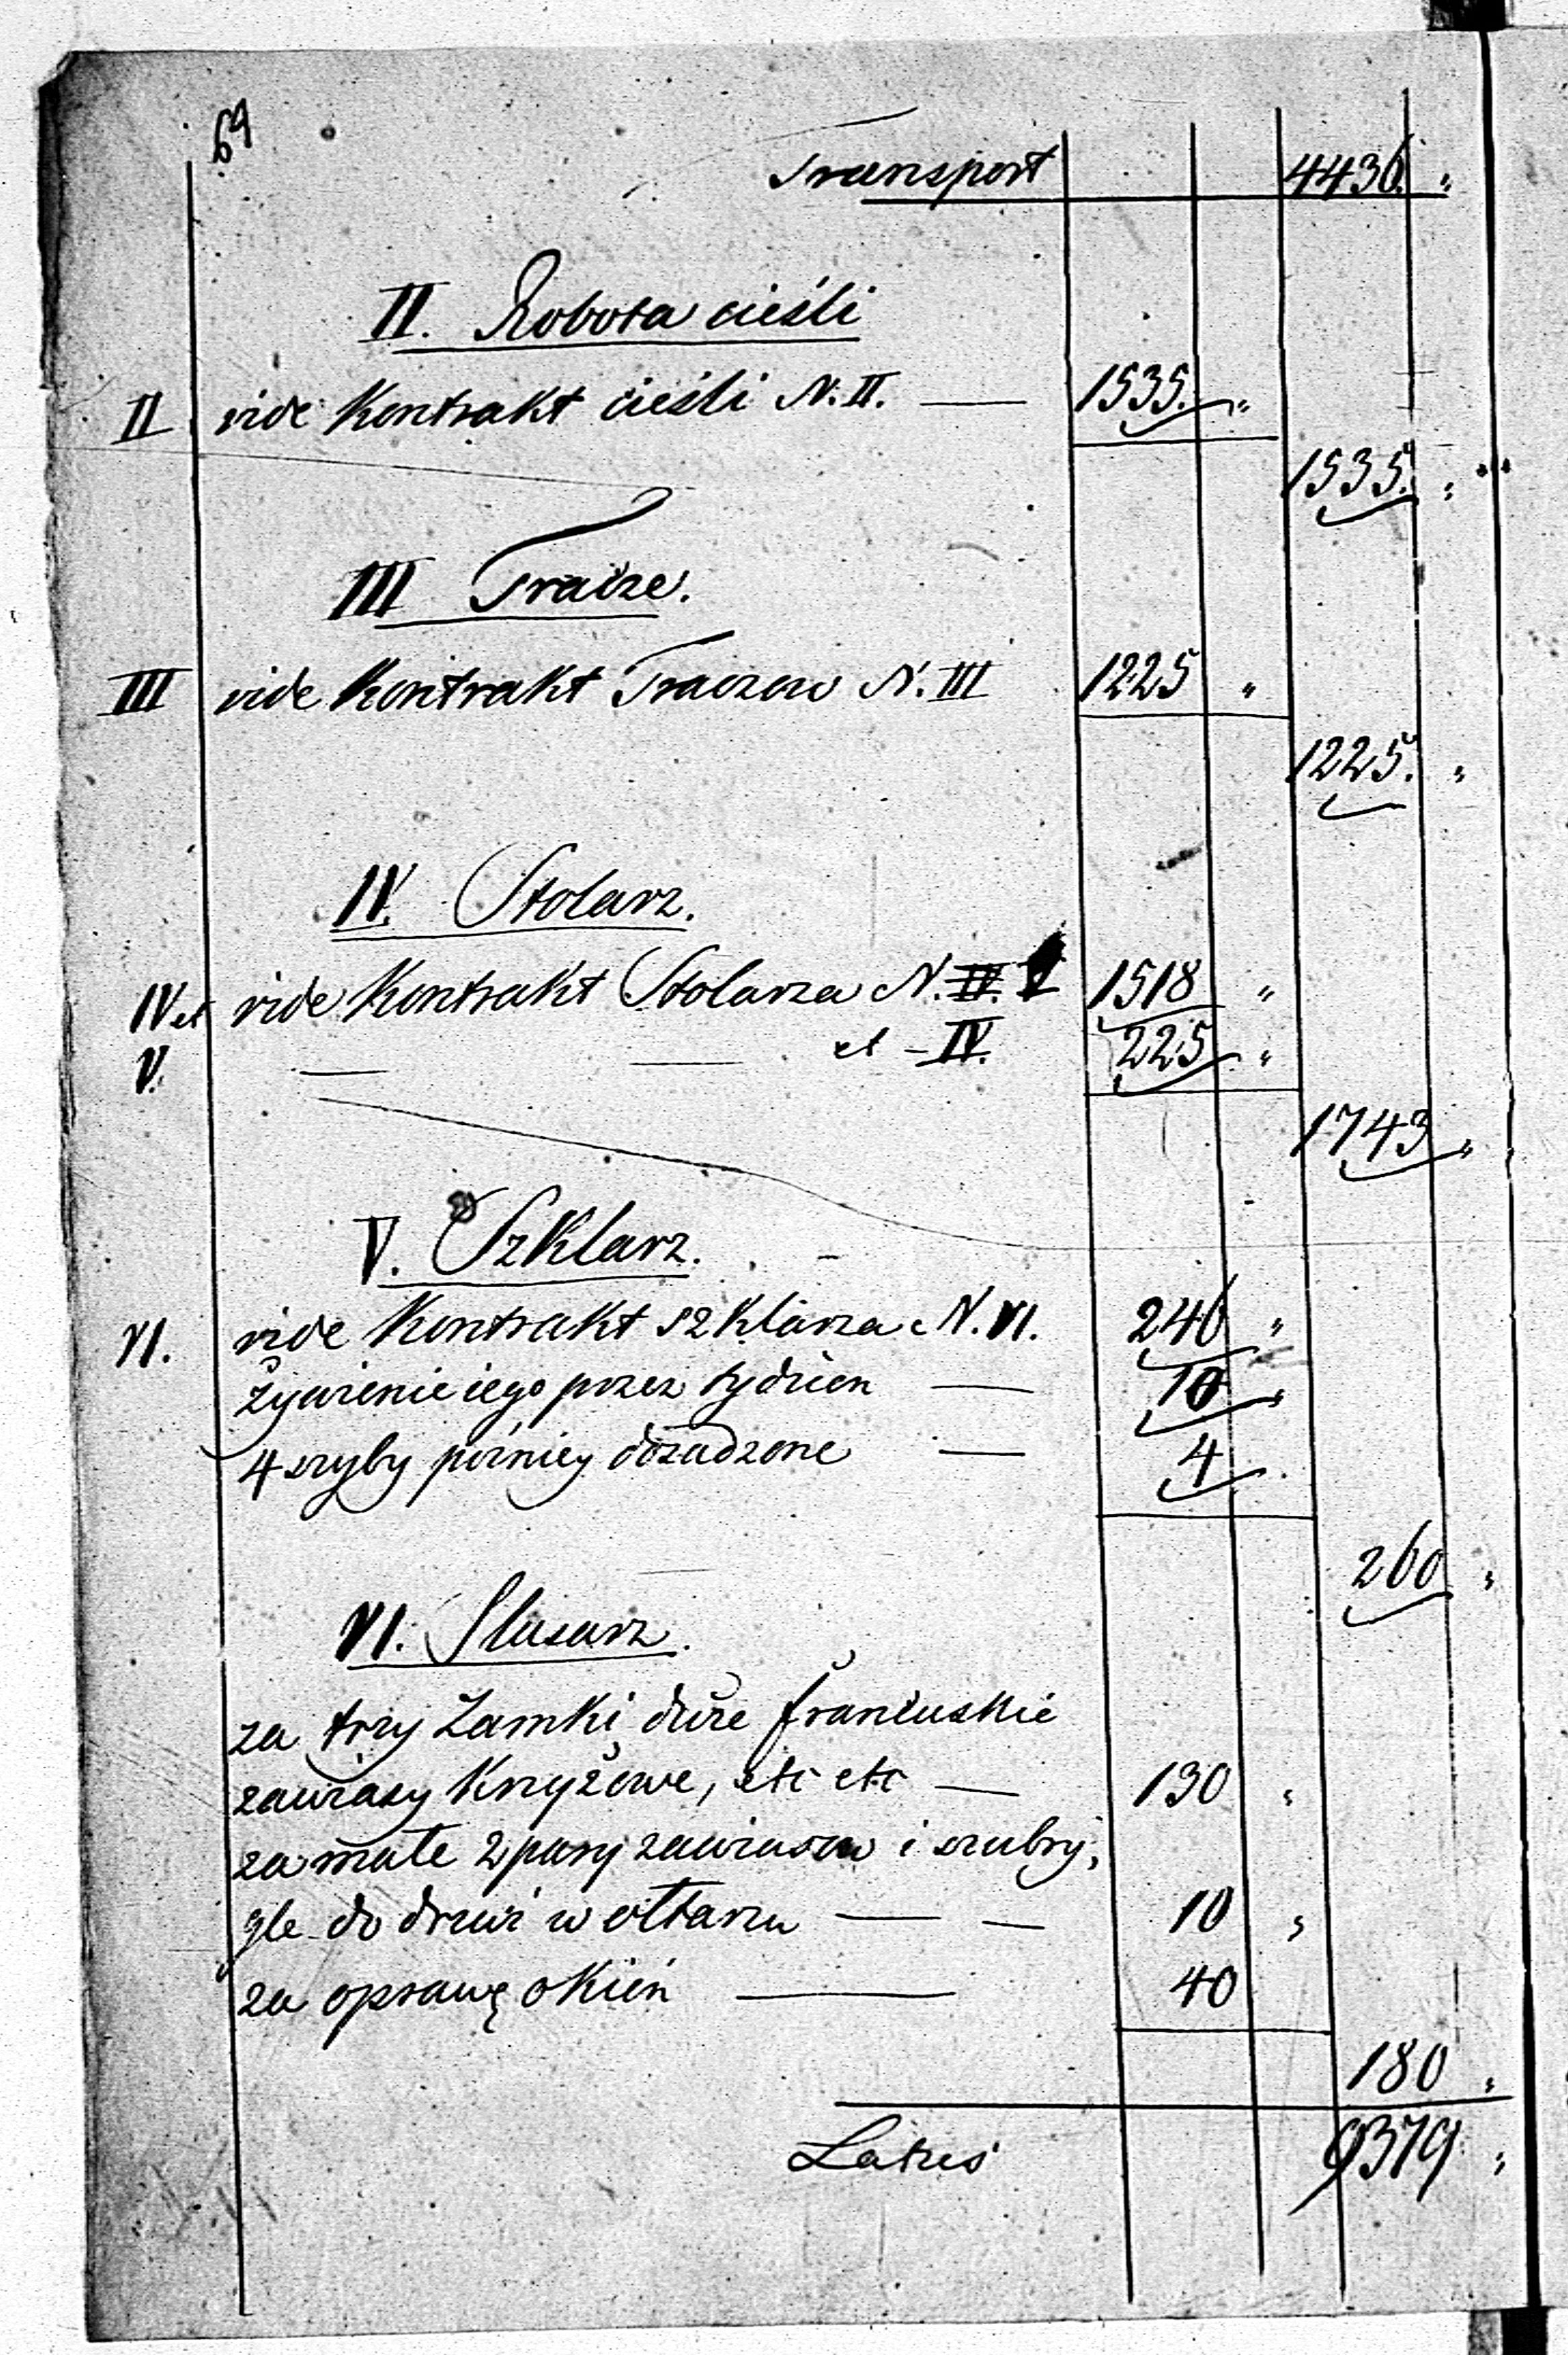 69
Transport 4436 "
II. Robota cieśli
II vide Kontrakt cieśli N. II. — 1535. "
1535. "
III Tracze.
III vide Kontrakt Traczow N. III 1225 "
1225. "
IV. Stolarz.
IV et vide Kontrakt Stolarza N. IV. V 1518 "
V. — — et – IV. 225 "
1743 "
V. Szklarz.
VI. vide Kontrakt szklarza N. VI. 246 "
Żywienie iego przez tydzien — 10 "
4 szyby pózniey dosadzone — 4
260 "
VI. Slusarz.
za trzy Zamki duże francuskie
zawiasy Krzyżowe, etc etc — 130 "
za małe 2 pary zawiasow i szubry,
gle do drzwi w ołtarzu — — 10 "
za oprawę okień — 40
180 "
Latus 9379 "